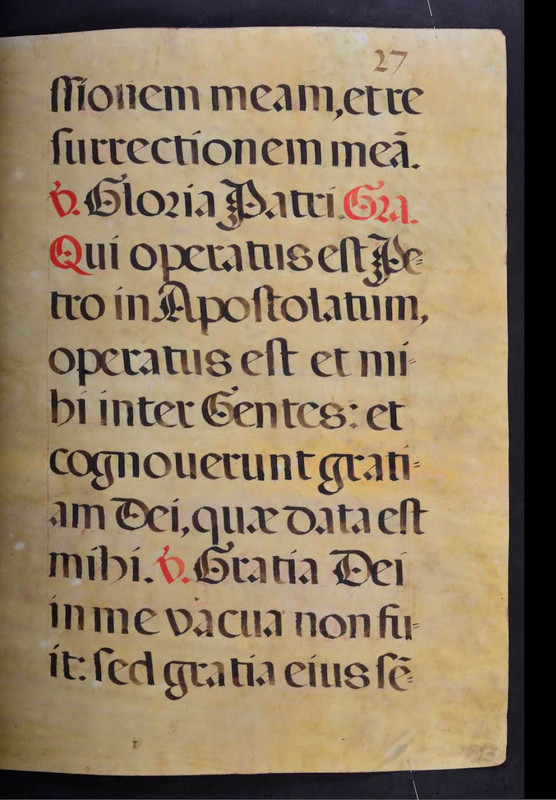 27
ſſionem meam, et re
ſurrectionem meã.
V. Gloria Patri. Gra.
Qui operatus eſt Pe=
tro in Apoſtolatum,
operatus eſt et mi=
hi inter Gentes: et
cognouerunt grati=
am Dei, quæ data eſt
mihi. V. Gratia Dei
in me vacua non fu=
it: ſed gratia eius ſẽ=